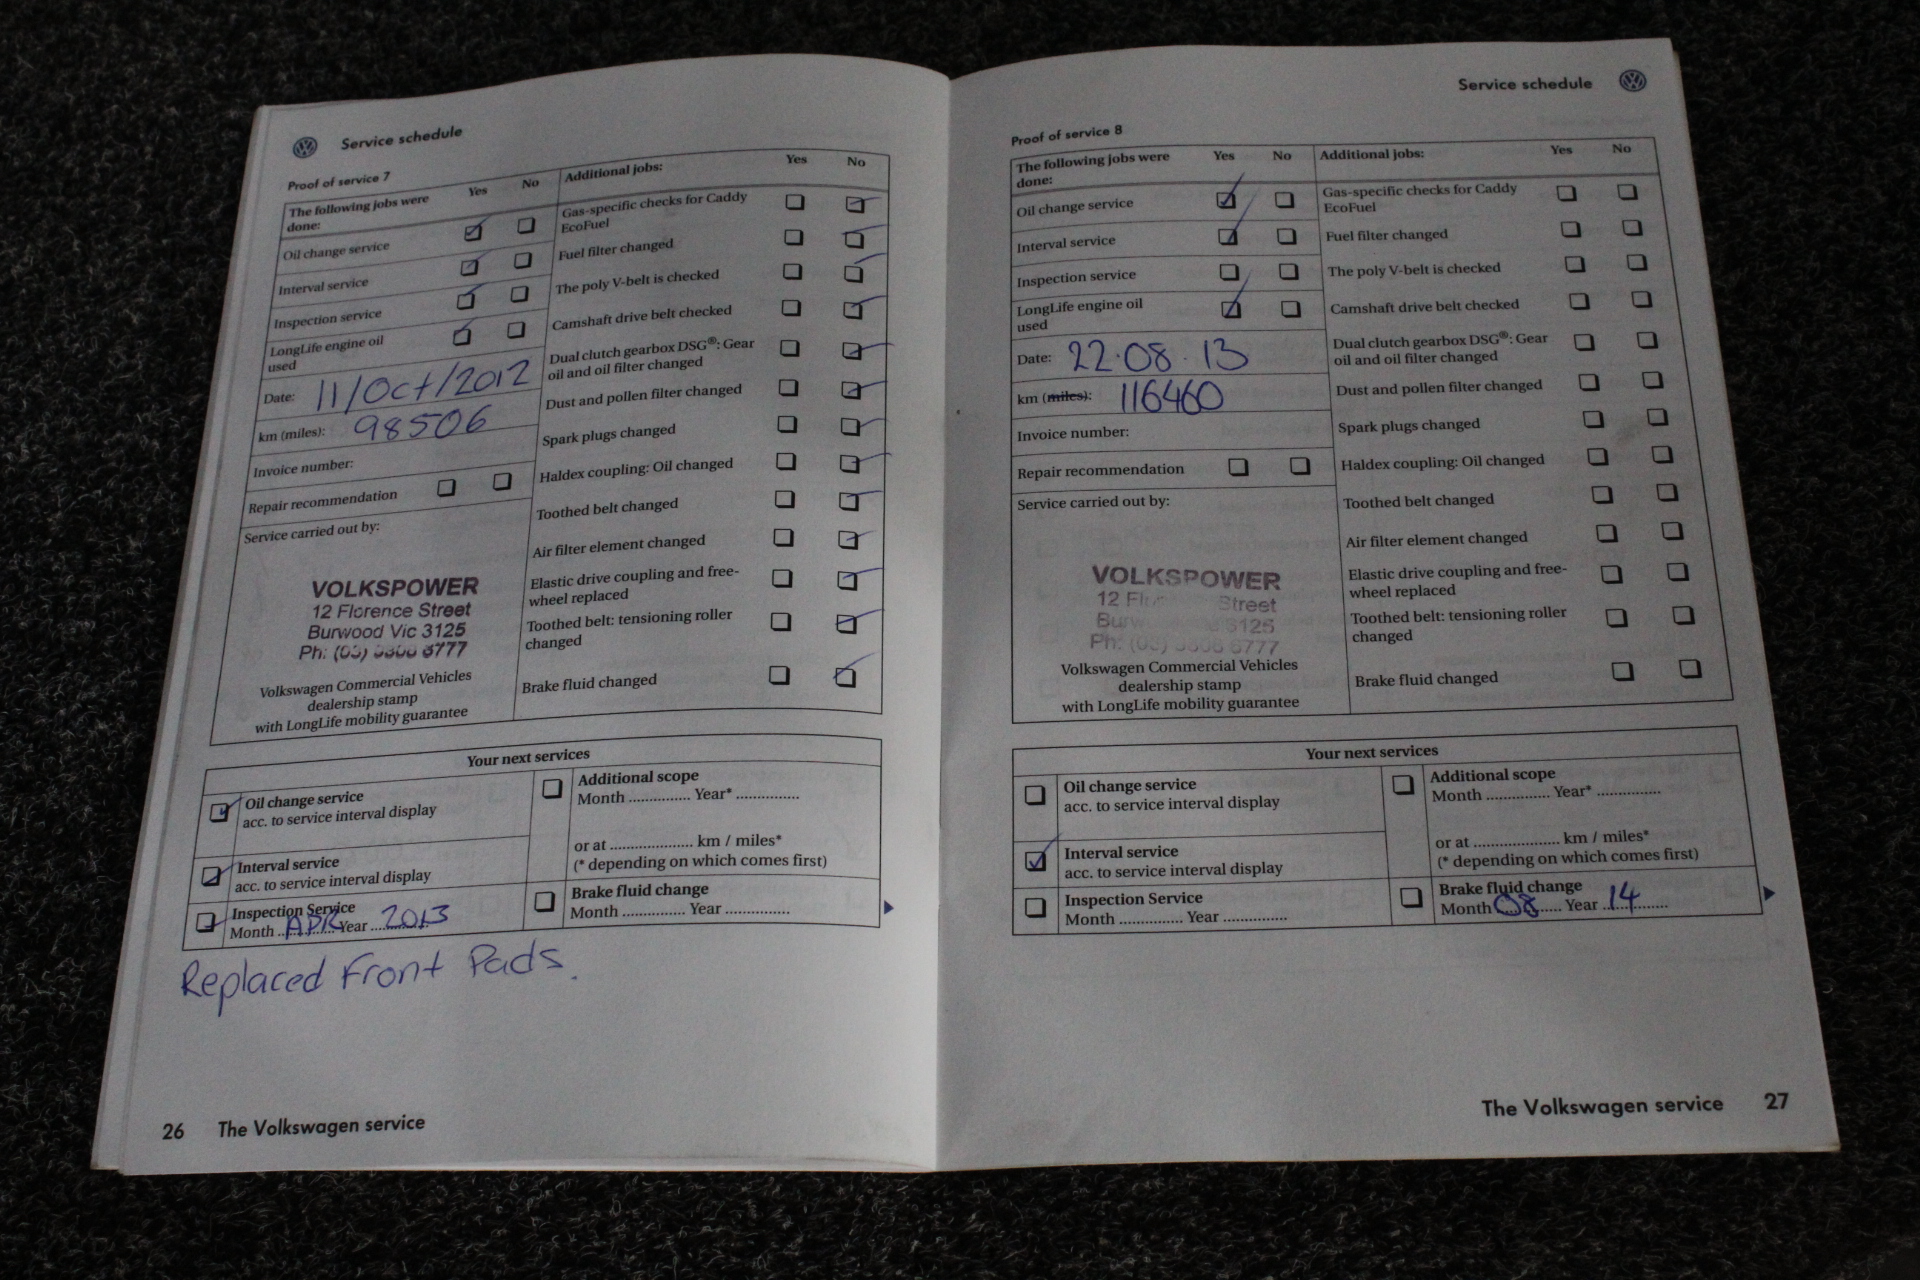 Service schedule
Proof of service 7
The following jobs were done: Yes No
Oil change service
Interval service
Inspection service
LongLife engine oil used
Date: 11/Oct/2012
km (miles): 98506
Invoice number:
Repair recommendation
Service carried out by:
VOLKSPOWER
12 Florence Street
Burwood Vic 3125
Ph: (03) 8777
Volkswagen Commercial Vehicles
dealership stamp
with LongLife mobility guarantee
Additional jobs: Yes No
Gas-specific checks for Caddy
EcoFuel
Fuel filter changed
The poly V-belt is checked
Camshaft drive belt checked
Dual clutch gearbox DSG®: Gear
oil and oil filter changed
Dust and pollen filter changed
Spark plugs changed
Haldex coupling: Oil changed
Toothed belt changed
Air filter element changed
Elastic drive coupling and free-
wheel replaced
Toothed belt: tensioning roller
changed
Brake fluid changed
Your next services
Oil change service
acc. to service interval display
Interval service
acc. to service interval display
Inspection Service
Month APR Year 2013
Additional scope
Month ............... Year* ...............
or at .................... km / miles*
(* depending on which comes first)
Brake fluid change
Month ............... Year ...............
Replaced Front Pads.
26 The Volkswagen service
Service schedule
Proof of service 8
The following jobs were done: Yes No
Oil change service
Interval service
Inspection service
LongLife engine oil used
Date: 22.08.13
km (miles): 116460
Invoice number:
Repair recommendation
Service carried out by:
VOLKSPOWER
12 Street
3125
Ph: 6777
Volkswagen Commercial Vehicles
dealership stamp
with LongLife mobility guarantee
Additional jobs: Yes No
Gas-specific checks for Caddy
EcoFuel
Fuel filter changed
The poly V-belt is checked
Camshaft drive belt checked
Dual clutch gearbox DSG®: Gear
oil and oil filter changed
Dust and pollen filter changed
Spark plugs changed
Haldex coupling: Oil changed
Toothed belt changed
Air filter element changed
Elastic drive coupling and free-
wheel replaced
Toothed belt: tensioning roller
changed
Brake fluid changed
Your next services
Oil change service
acc. to service interval display
Interval service
acc. to service interval display
Inspection Service
Month ............... Year ...............
Additional scope
Month ............... Year* ...............
or at .................... km / miles*
(* depending on which comes first)
Brake fluid change
Month 08 Year 14
The Volkswagen service 27